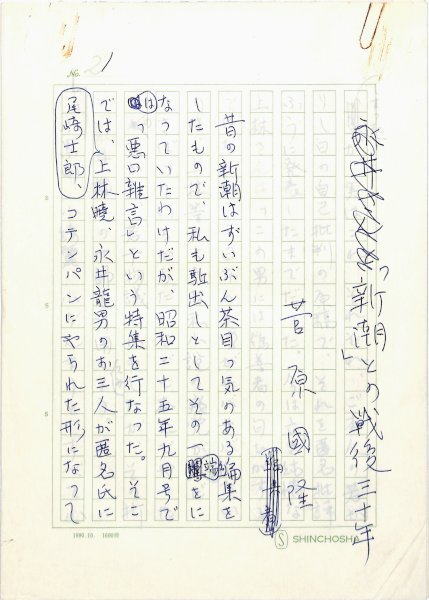 No. 2
「新潮」との戦後三十年
菅原國隆
昔の新潮はずいぶん茶目っ気のある編集を
したもので、私も駈出しとしてその一端をに
なっていたわけだが、昭和二十五年九月号で
は「悪口雑言」という特集を行なった。そこ
では、上林暁、永井龍男のお三人が匿名氏に
尾崎士郎、
コテンパンにやられた形になって
1980.10. 1600冊
S SHINCHOSHA
5
5
5